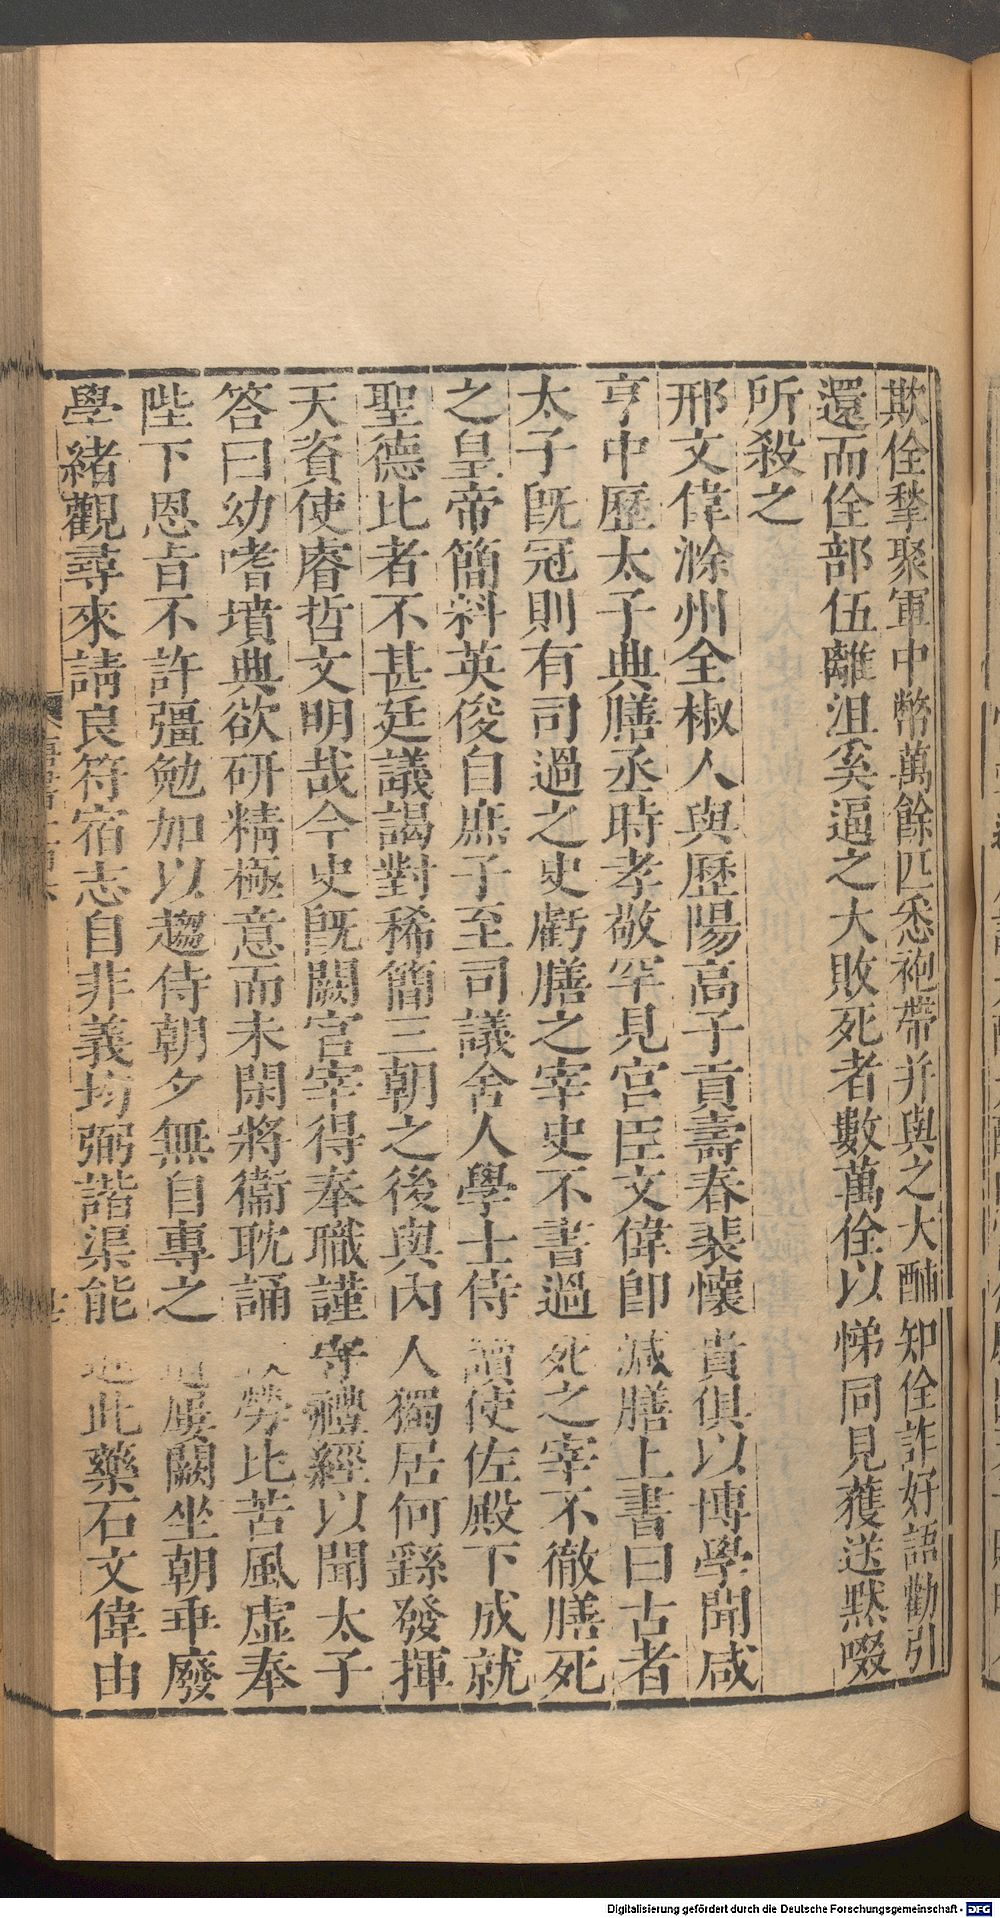 欺佺孳聚軍中幣萬餘匹悉袍帶并與之大酺知佺詐好語勸引
還而佺部伍離沮奚逼之大敗死者數萬佺以悌同見獲送默啜
所殺之
邢文偉滁州全椒人與歷陽高子貢壽春裴懷貴俱以博學聞咸
亨中歷太子典膳丞時孝敬罕見宮臣文偉卽減膳上書曰古者
太子旣冠則有司過之史虧膳之宰史不書過死之宰不徹膳死
之皇帝簡料英俊自庶子至司議舍人學士侍讀使佐殿下成就
聖德比者不甚廷議謁對稀簡三朝之後與內人獨居何繇發揮
天資使睿哲文明哉今史旣闕官宰得奉職謹守禮經以聞太子
答曰幼嗜墳典欲研精極意而未閑將衞耽誦勞比苦風虛奉
陛下恩旨不許彊勉加以趨侍朝夕無自專之屢闕坐朝乖廢
學緒觀尋來請良符宿志自非義均弼諧渠能進此藥石文偉由
Digitalisierung gefördert durch die Deutsche Forschungsgemeinschaft - DFG